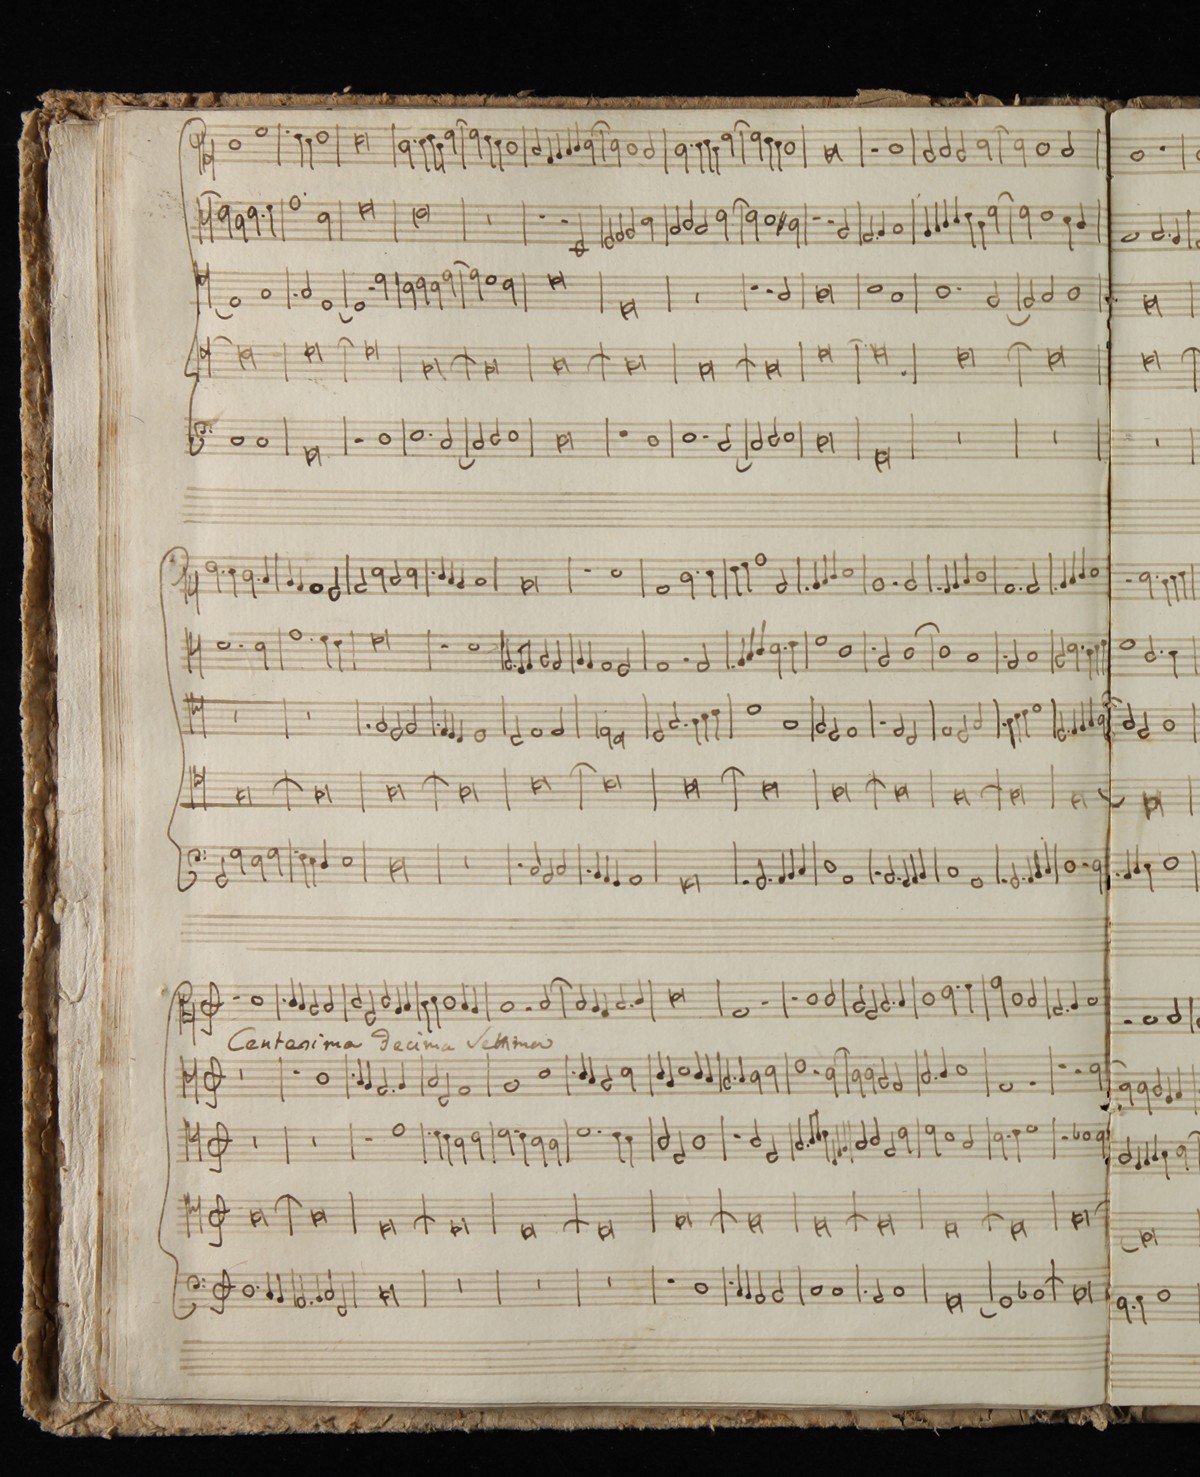 Centesima Decima Settima